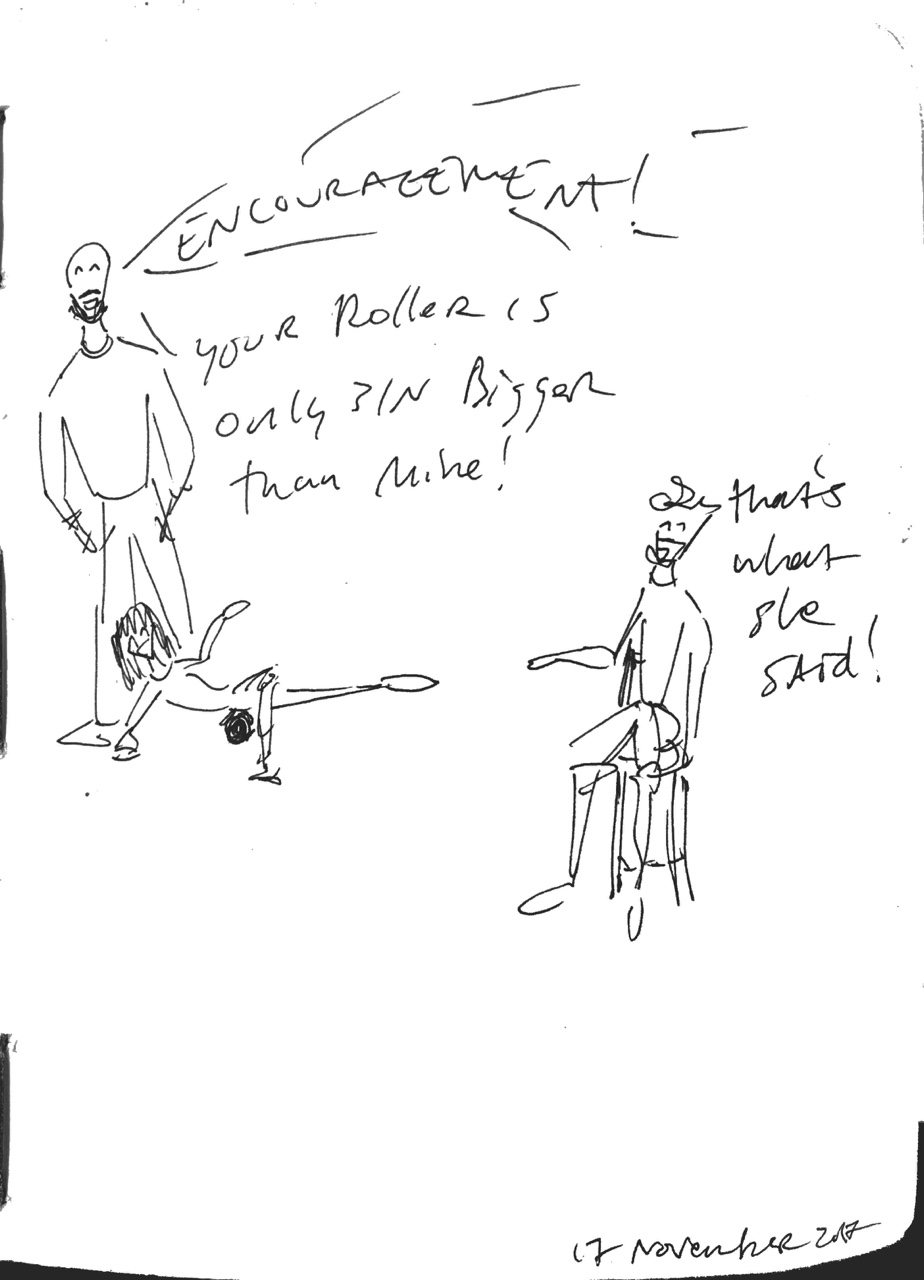 ENCOURAGEMENT!
your Roller is
only 3IN Bigger
than Mine!
that's
what
she
said!
17 November 2017